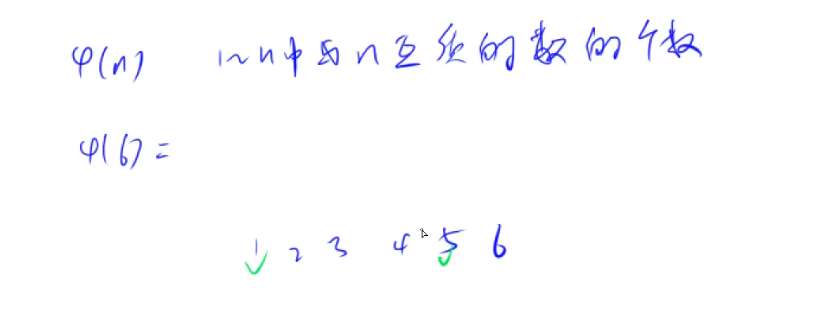 φ(n) 1~n中与n互质的数的个数
φ(6)=
1 2 3 4 5 6